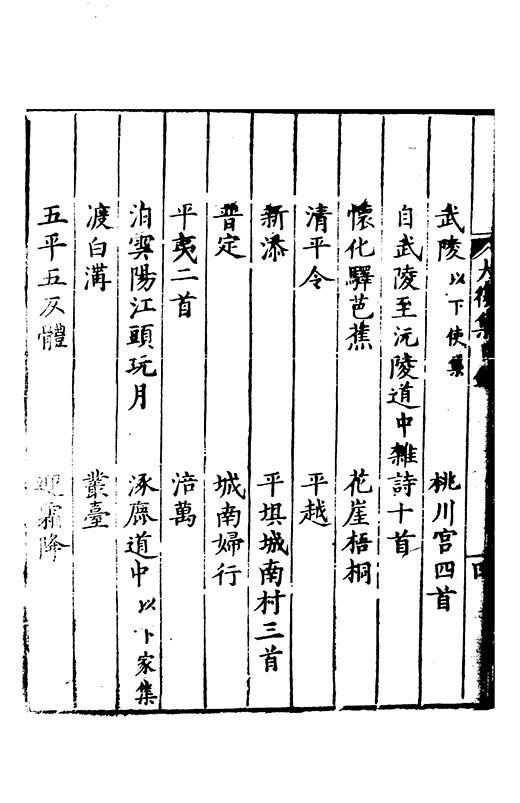 大復集目錄
四
武陵以下使集　桃川宮四首
自武陵至沅陵道中雜詩十首
懷化驛芭蕉　花崖梧桐
清平令　平越
新添　平埧城南村三首
普定　城南婦行
平夷二首　涪萬
泊雲陽江頭玩月　涿鹿道中以下家集
渡白溝　叢臺
五平五仄體　迎霜降